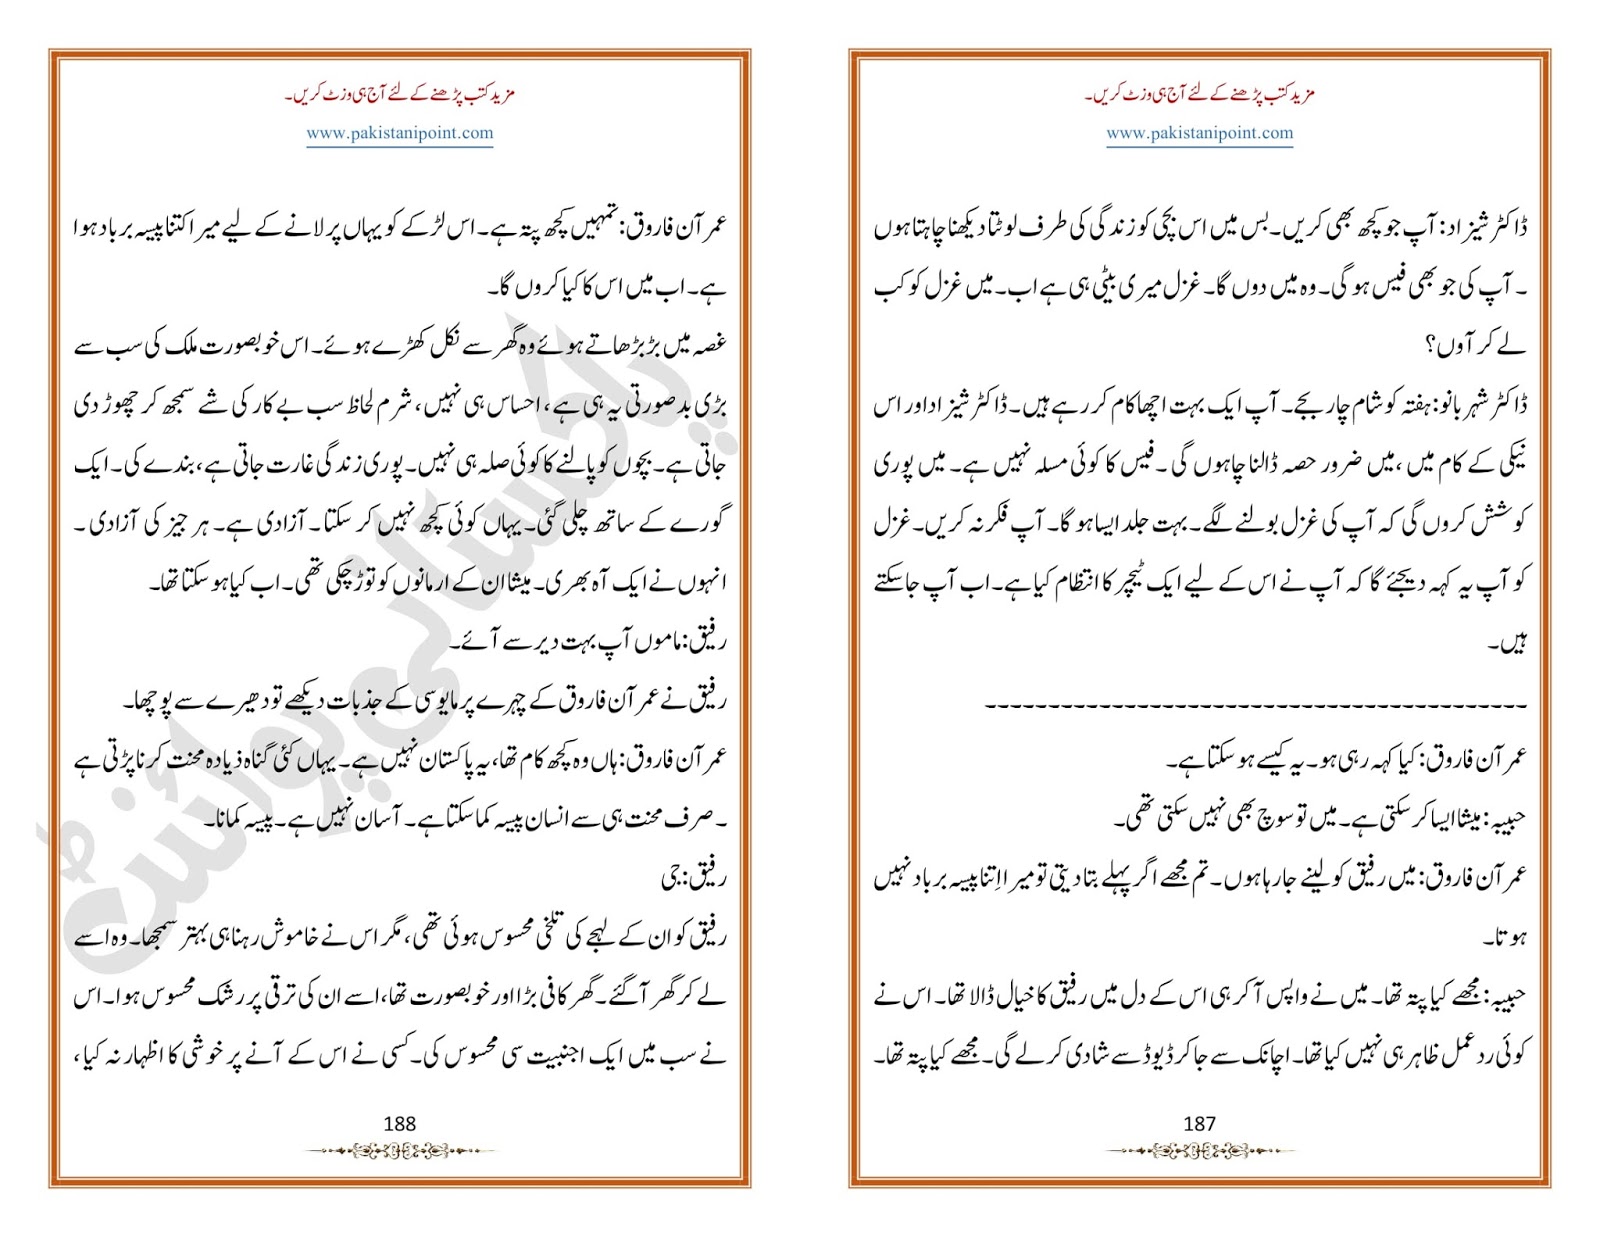 مزید کتب پڑھنے کے لئے آج ہی وزٹ کریں۔
www.pakistanipoint.com
ڈاکٹر شیزاد: آپ جو کچھ بھی کریں۔ بس میں اس بچی کو زندگی کی طرف لوٹتا دیکھنا چاہتا ہوں
۔ آپ کی جو بھی فیس ہو گی۔ وہ میں دوں گا۔ غزل میری بیٹی ہی ہے اب۔ میں غزل کو کب
لے کر آوں؟
ڈاکٹر شہر بانو: ہفتہ کو شام چار بجے۔ آپ ایک بہت اچھا کام کر رہے ہیں۔ ڈاکٹر شیزاد اور اس
نیکی کے کام میں ،میں ضرور حصہ ڈالنا چاہوں گی ۔ فیس کا کوئی مسلہ نہیں ہے۔ میں پوری
کوشش کروں گی کہ آپ کی غزل بولنے لگے۔ بہت جلد ایسا ہو گا۔ آپ فکر نہ کریں۔ غزل
کو آپ یہ کہہ دیجئے گا کہ آپ نے اس کے لیے ایک ٹیچر کا انتظام کیا ہے۔ اب آپ جا سکتے
ہیں۔
--------------------------------------------
عمر آن فاروق: کیا کہہ رہی ہو۔ یہ کیسے ہو سکتا ہے۔
حبیبہ: میشا ایسا کر سکتی ہے۔ میں تو سوچ بھی نہیں سکتی تھی۔
عمر آن فاروق: میں رفیق کو لینے جا رہا ہوں۔ تم مجھے اگر پہلے بتا دیتی تو میرا اِتنا پیسہ برباد نہیں
ہوتا۔
حبیبہ: مجھے کیا پتہ تھا۔ میں نے واپس آ کر ہی اس کے دل میں رفیق کا خیال ڈالا تھا۔ اس نے
کوئی رد عمل ظاہر ہی نہیں کیا تھا۔ اچانک سے جا کر ڈیوڈ سے شادی کر لے گی۔ مجھے کیا پتہ تھا۔
187
مزید کتب پڑھنے کے لئے آج ہی وزٹ کریں۔
www.pakistanipoint.com
عمر آن فاروق: تمہیں کچھ پتہ ہے۔ اس لڑکے کو یہاں پر لانے کے لیے میرا کتنا پیسہ برباد ہوا
ہے۔ اب میں اس کا کیا کروں گا۔
غصہ میں بڑبڑھاتے ہوئے وہ گھر سے نکل کھڑے ہوئے۔ اس خوبصورت ملک کی سب سے
بڑی بد صورتی یہ ہی ہے ، احساس ہی نہیں، شرم لحاظ سب بے کار کی شے سمجھ کر چھوڑ دی
جاتی ہے۔ بچوں کو پالنے کا کوئی صلہ ہی نہیں۔ پوری زندگی غارت جاتی ہے ، بندے کی۔ ایک
گورے کے ساتھ چلی گئی۔ یہاں کوئی کچھ نہیں کر سکتا۔ آزادی ہے۔ ہر جیز کی آزادی ۔
انہوں نے ایک آہ بھری۔ میشا ان کے ارمانوں کو توڑ چکی تھی۔ اب کیا ہو سکتا تھا۔
رفیق: ماموں آپ بہت دیر سے آئے۔
رفیق نے عمر آن فاروق کے چہرے پر مایوسی کے جذبات دیکھے تو دھیرے سے پوچھا۔
عمر آن فاروق: ہاں وہ کچھ کام تھا، یہ پاکستان نہیں ہے۔ یہاں کئی گناہ ذیادہ محنت کرنا پڑتی ہے
۔ صرف محنت ہی سے انسان پیسہ کما سکتا ہے۔ آسان نہیں ہے۔ پیسہ کمانا۔
رفیق: جی
رفیق کو ان کے لہجے کی تلخی محسوس ہوئی تھی ، مگر اس نے خاموش رہنا ہی بہتر سمجھا۔ وہ اسے
لے کر گھر آ گئے۔ گھر کافی بڑا اور خوبصورت تھا، اسے ان کی ترقی پر رشک محسوس ہوا۔ اس
نے سب میں ایک اجنبیت سی محسوس کی۔ کسی نے اس کے آنے پر خوشی کا اظہار نہ کیا ،
188
پاکستانی پوائنٹ